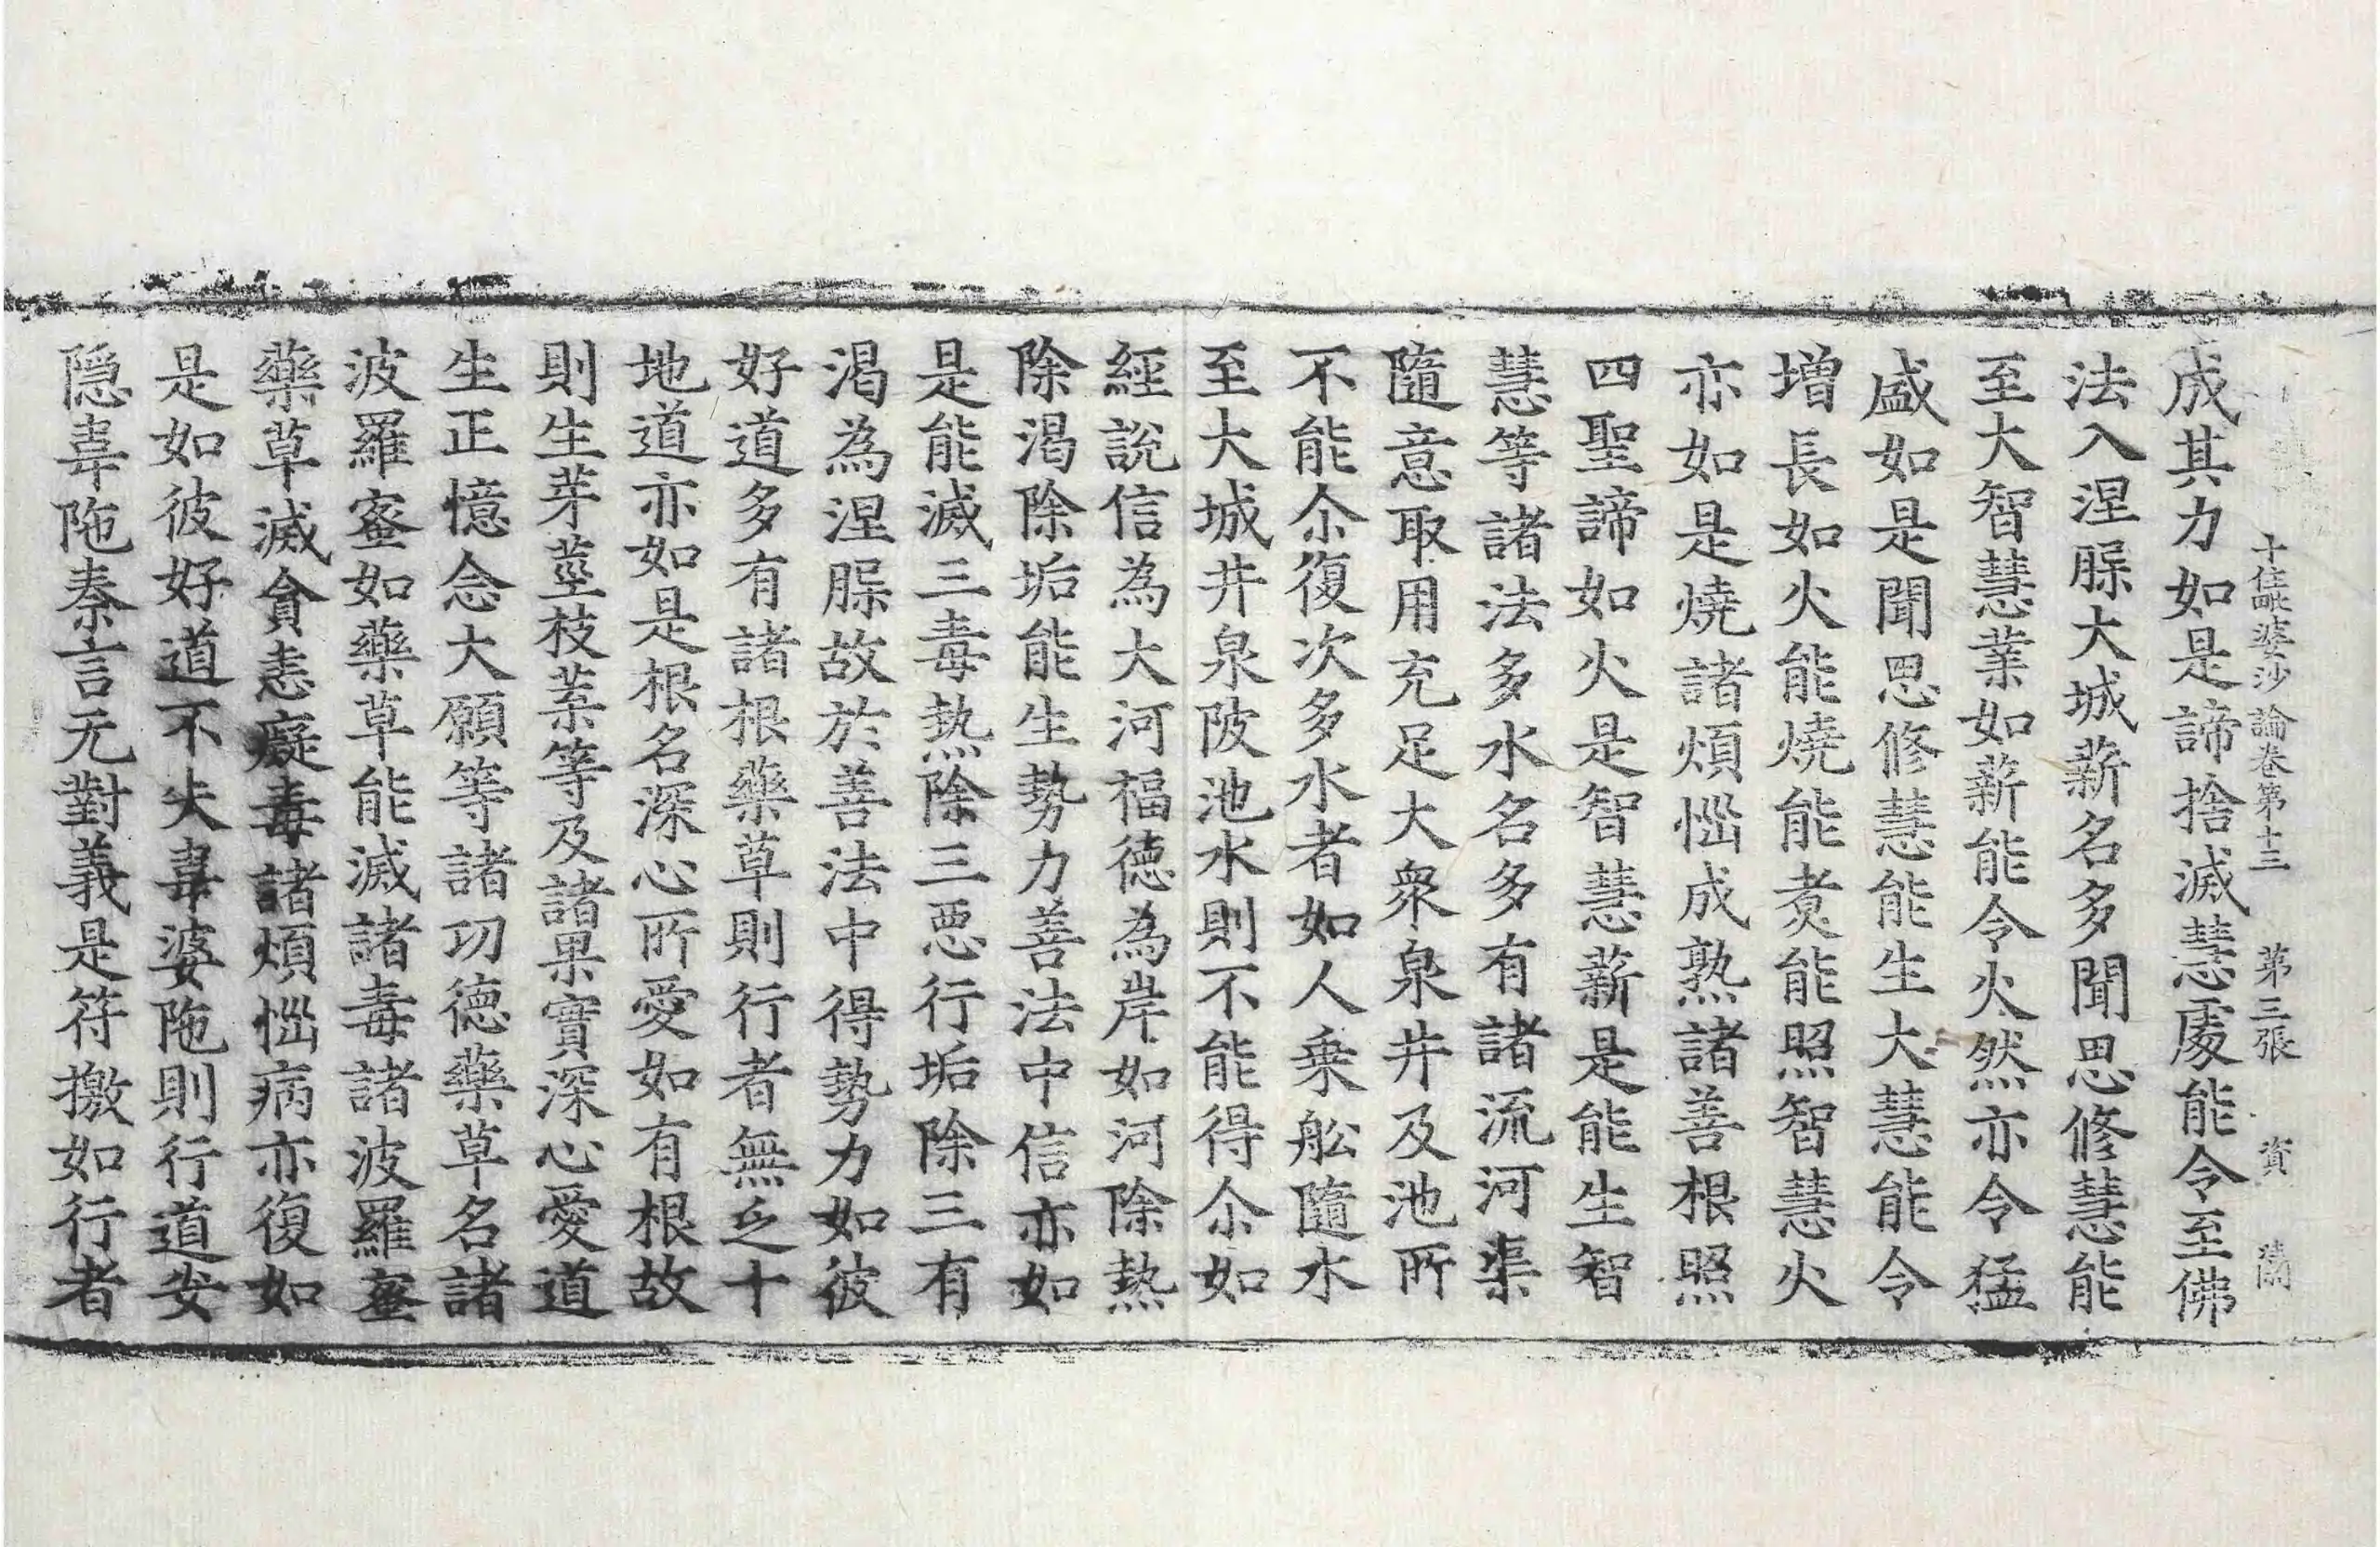 十住毗婆沙論卷第十三 第三張 資
成其力如是諦捨滅慧處能令至佛
法入涅槃大城薪名多聞思修慧能
至大智慧業如薪能令火然亦令猛
盛如是聞思修慧能生大慧能令
增長如火能燒能煑能照智慧火
亦如是燒諸煩惱成熟諸善根照
四聖諦如火是智慧薪是能生智
慧等諸法多水名多有諸流河渠
隨意取用充足大衆泉井及池所
不能尒復次多水者如人乗舩隨水
至大城井泉陂池水則不能得尒如
經說信為大河福德為岸如河除熱
除渴除垢能生勢力善法中信亦如
是能滅三毒熱除三惡行垢除三有
渴為涅槃故於善法中得勢力如彼
好道多有諸根藥草則行者無乏十
地道亦如是根名深心所愛如有根故
則生芽莖枝葉等及諸果實深心愛道
生正憶念大願等諸功德藥草名諸
波羅蜜如藥草能滅諸毒諸波羅蜜
藥草滅貪恚癡毒諸煩惱病亦復如
是如彼好道不失韋婆陁則行道安
隠韋陁秦言无對義是符撽如行者